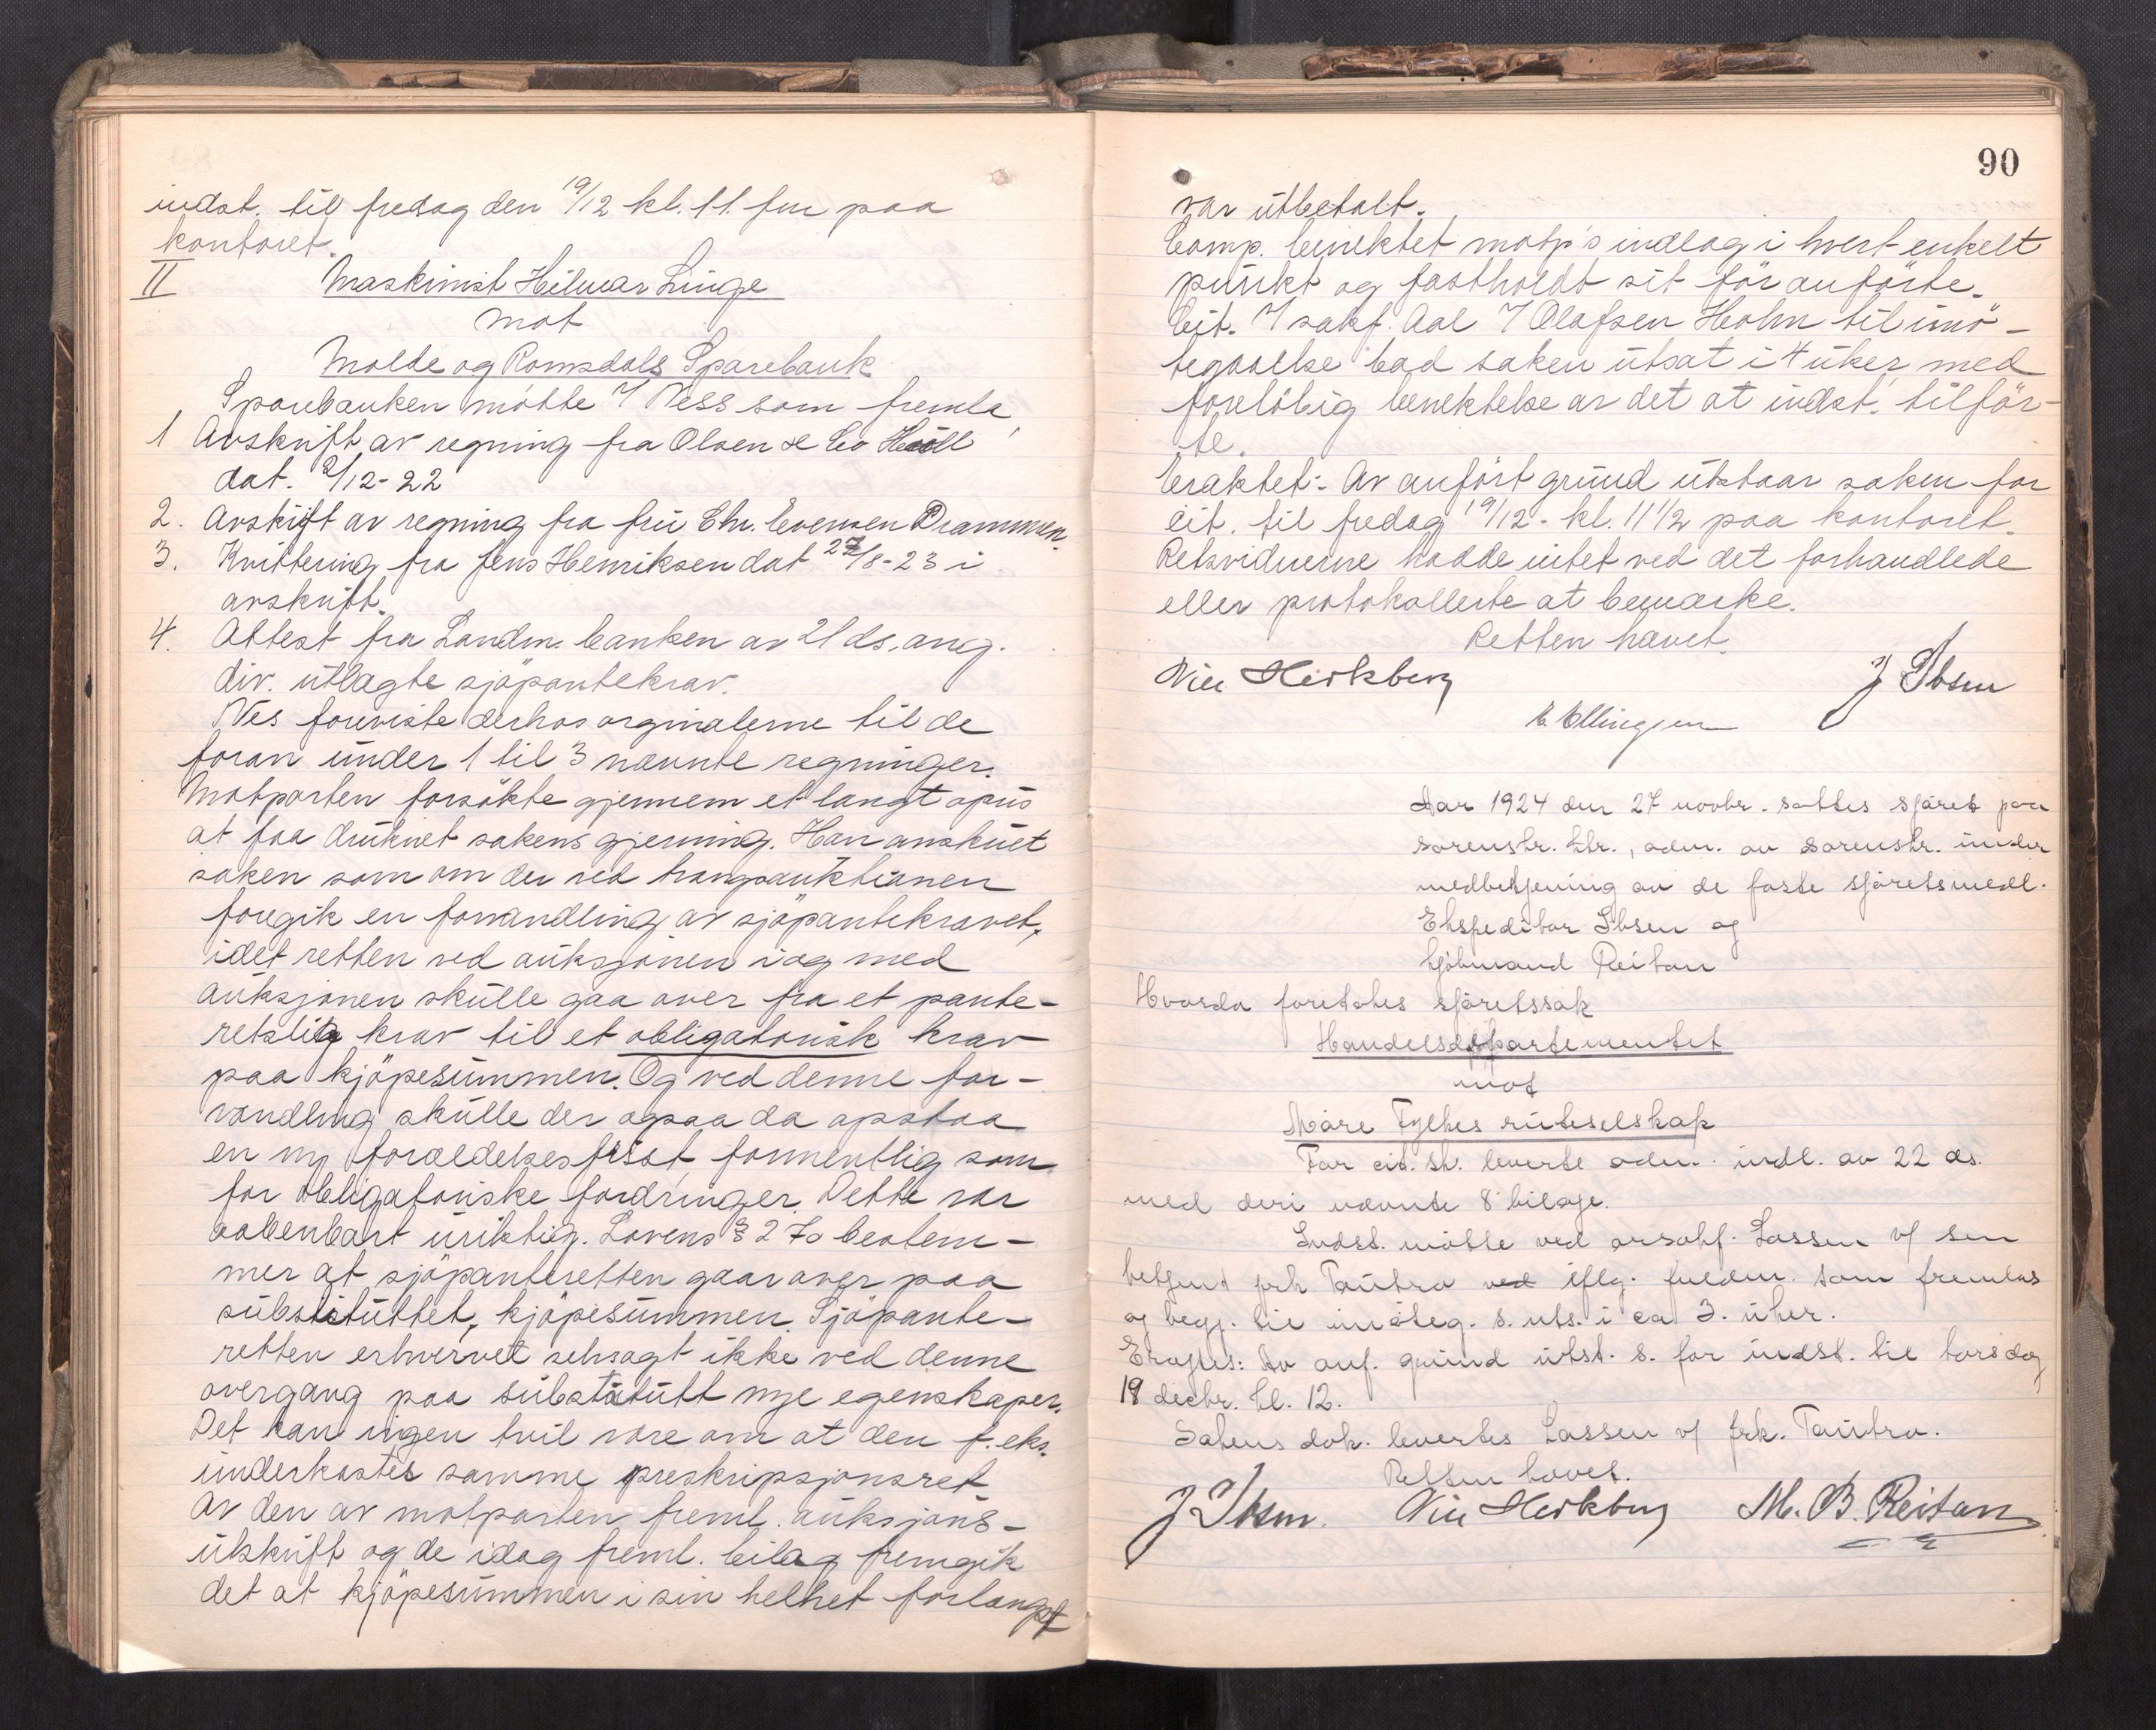 indst. til fredag den 19/12 kl. 11 fm paa
kontoret.
II Maskinist Hilmar Linge
mot
Molde og Romsdals Sparebank
Sparebanken møtte v/ Ness som fremla
1 Avskrift av regning fra Olsen & Co
dat. 2/12-22
2. Avskrift av regning fra fru Chr. Evensen Drammen.
3. Kvittering fra Jens Henriksen dat 27/8-23 i
avskrift.
4. Attest fra Landm. banken av 21 ds. ang.
div. utlagte sjöpantekrav.
Nes foreviste derhos orginalerne til de
foran under 1 til 3 nævnte regninger.
Motparten forsökte gjennem et langt opus
at faa druknet sakens gjerning. Han anskuet
saken som om der ved tvangsauktionen
foregik en forvandling av sjöpantekravet,
idet retten ved auksjonen i og med
auksjonen skulle gaa over fra et pante-
retslig krav til et obligatorisk krav
paa kjöpesummen. Og ved denne for-
vandling skulle der ogsaa da opstaa
en ny foreldelsesfrist formentlig som
for obligatoriske fordringer. Dette var
aabenbart uriktig. Lovens § 270 bestem-
mer at sjöpanteretten gaar over paa
substituttet, kjöpesummen. Sjöpante-
retten erhvervet selvsagt ikke ved denne
overgang paa substitutt nye egenskaper.
Det kan ingen tvil være om at den f. eks.
underkastes samme preskripsjonsret
Av den av motparten freml. auksjons-
utskrift og de idag freml. bilag fremgik
det at kjöpesummen i sin helhet forlangst
90
var utbetalt.
Comp. benektet motp's indlæg i hvert enkelt
punkt og fastholdt sit för anförte.
Cit. v/ sakf. Aal v/ Olafsen Holm til imö-
tegaaelse bad saken utsat i 4 uker med
foreløbig benektelse av det at indst. tilför-
te.
Eraktet: Av anfört grund utstaar saken for
cit. til fredag 19/12. kl. 11 1/2 paa kontoret.
Retsvidnerne hadde intet ved det forhandlede
eller protokollerte at bemærke.
Retten hævet.
J Ibsen
E Ellingsen
Aar 1924 den 27 novbr. sattes sjöret paa
sorenskr. ktr., adm. av sorenskr. under
medbetjening av de faste sjöretsmedl.
Ekspeditör Ibsen og
Sjömand Reitan
Hvorda foretokes sjöretssak
Handelsdepartementet
mot
Möre Fylkes ruteselskap
For cit. st. leverte adm. indl. av 22 ds.
med deri nævnte 8 bilage.
Indst. møtte ved orsakf. Lassen v/ sin
betjent frk Tautra iflg. fuldm. som fremlas
og begj. til imöteg. s. uts. i ca 3. uker.
Eragtes: Av anf. grund utst. s. for indst. til torsdag
18 decbr. kl. 12.
Sakens dok. levertes Lassen v/ frk. Tautra.
Retten hævet.
J Ibsen. M. B. Reitan